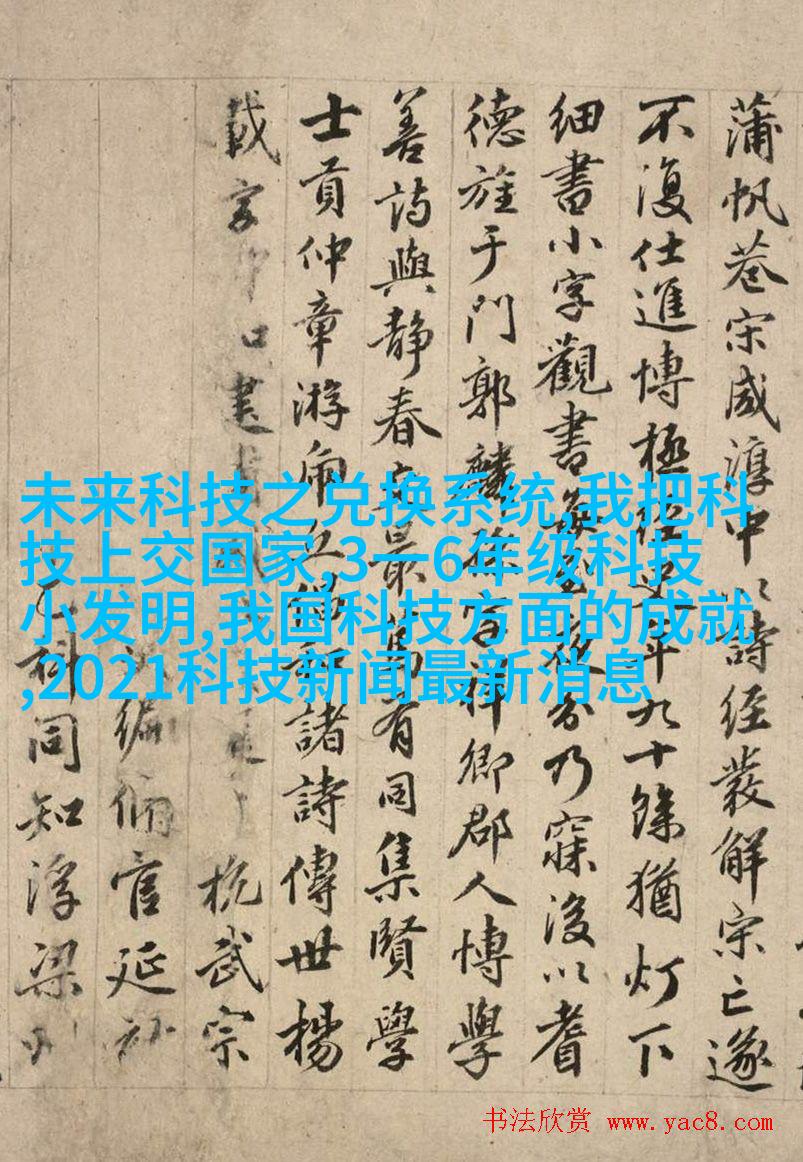 蒲帆巷宋咸淳中以詩經發解宋亡遂
不復仕進博極經史年九十餘猶灯下
细書小字觀書每至夜分乃寐後以耆
德旌于門郭麟孫字祥卿郡人博學
善詩與静春最有同集賢學
士貢仲章游諸詩傳世楊
載字杭武宗
編脩官延祐
同知浮梁州
未来科技之兑换系统,我把科
技上交国家,3一6年级科技
小发明,我国科技方面的成就
,2021科技新闻最新消息
书法欣赏 www.yac8.com